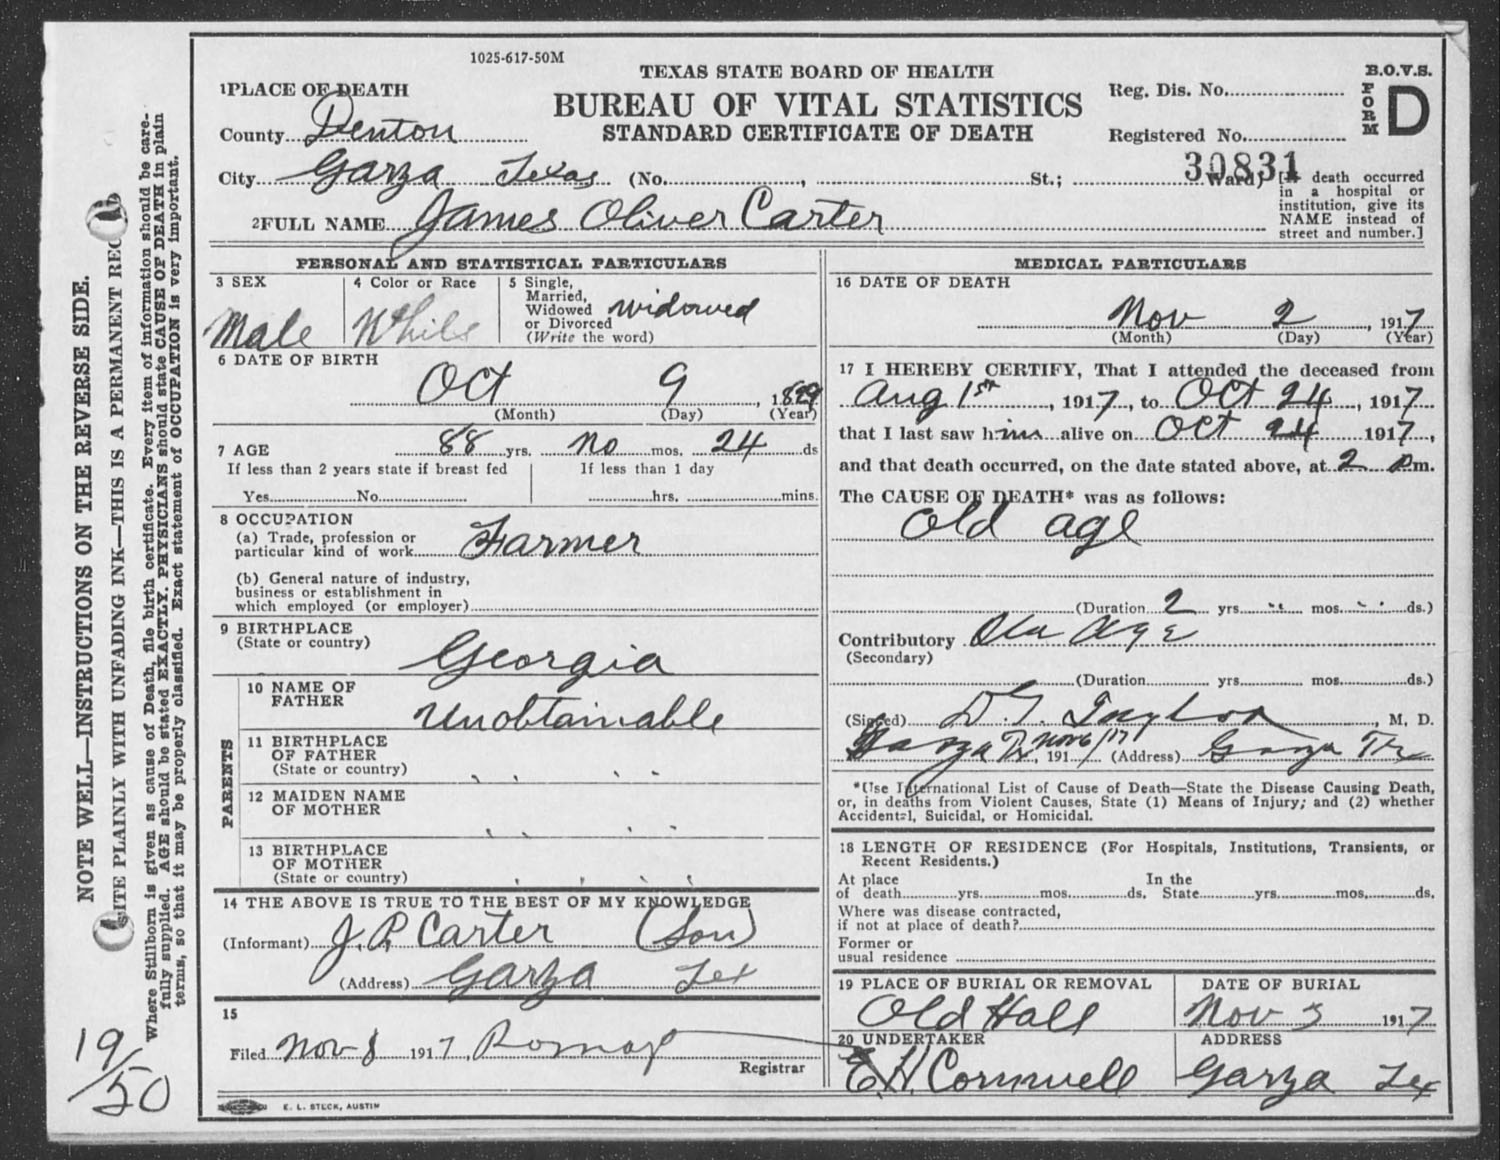 1025-617-50M
TEXAS STATE BOARD OF HEALTH
BUREAU OF VITAL STATISTICS
STANDARD CERTIFICATE OF DEATH
B.O.V.S.
FORM D
Reg. Dis. No.
Registered No.
30831
1PLACE OF DEATH
County Denton
City Garza Texas (No. , St.; Ward)
death occurred
in a hospital or
institution, give its
NAME instead of
street and number.]
2FULL NAME James Oliver Carter
PERSONAL AND STATISTICAL PARTICULARS
3 SEX
Male
4 Color or Race
White
5 Single,
Married,
Widowed
or Divorced
(Write the word)
widowed
6 DATE OF BIRTH
Oct 9, 1829
(Month) (Day) (Year)
7 AGE 88 yrs. no mos. 24 ds
If less than 2 years state if breast fed
Yes No
If less than 1 day
hrs. mins.
8 OCCUPATION
(a) Trade, profession or
particular kind of work Farmer
(b) General nature of industry,
business or establishment in
which employed (or employer)
9 BIRTHPLACE
(State or country)
Georgia
PARENTS
10 NAME OF
FATHER
Unobtainable
11 BIRTHPLACE
OF FATHER
(State or country)
12 MAIDEN NAME
OF MOTHER
13 BIRTHPLACE
OF MOTHER
(State or country)
14 THE ABOVE IS TRUE TO THE BEST OF MY KNOWLEDGE
(Informant) J. P. Carter (Son)
(Address) Garza Tex
15
Filed Nov 8 1917
Registrar
E. L. STECK, AUSTIN
MEDICAL PARTICULARS
16 DATE OF DEATH
Nov 2, 1917
(Month) (Day) (Year)
17 I HEREBY CERTIFY, That I attended the deceased from
Aug 1st, 1917, to Oct 24, 1917
that I last saw him alive on Oct 24 1917,
and that death occurred, on the date stated above, at 2 pm.
The CAUSE OF DEATH* was as follows:
Old age
(Duration 2 yrs. mos. ds.)
Contributory Old Age
(Secondary)
(Duration yrs. mos. ds.)
(Signed) D. G. Taylor, M. D.
Garza Tx Nov 6/17, 191 (Address) Garza Tex
*Use International List of Cause of Death—State the Disease Causing Death,
or, in deaths from Violent Causes, State (1) Means of Injury; and (2) whether
Accidental, Suicidal, or Homicidal.
18 LENGTH OF RESIDENCE (For Hospitals, Institutions, Transients, or
Recent Residents.)
At place In the
of death yrs. mos. ds. State yrs. mos. ds.
Where was disease contracted,
if not at place of death?
Former or
usual residence
19 PLACE OF BURIAL OR REMOVAL
Old Hall
DATE OF BURIAL
Nov 3 1917
20 UNDERTAKER
E. H. Cornwell
ADDRESS
Garza Tex
NOTE WELL—INSTRUCTIONS ON THE REVERSE SIDE.
ITE PLAINLY WITH UNFADING INK—THIS IS A PERMANENT REC
Where Stillborn is given as cause of Death, file birth certificate. Every item of information should be care-
fully supplied. AGE should be stated EXACTLY. PHYSICIANS should state CAUSE OF DEATH in plain
terms, so that it may be properly classified. Exact statement of OCCUPATION is very important.
19/50